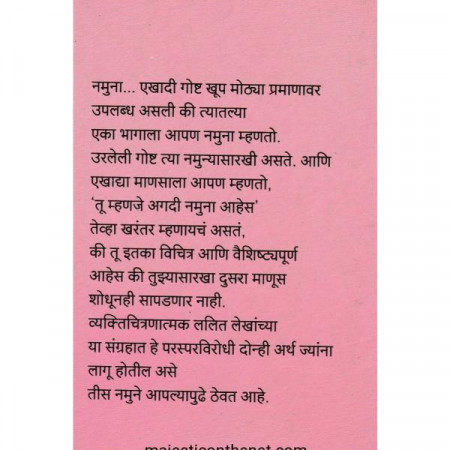 नमुना... एखादी गोष्ट खूप मोठ्या प्रमाणावर
उपलब्ध असली की त्यातल्या
एका भागाला आपण नमुना म्हणतो.
उरलेली गोष्ट त्या नमुन्यासारखी असते. आणि
एखाद्या माणसाला आपण म्हणतो,
‘तू म्हणजे अगदी नमुना आहेस’
तेव्हा खरंतर म्हणायचं असतं,
की तू इतका विचित्र आणि वैशिष्ट्यपूर्ण
आहेस की तुझ्यासारखा दुसरा माणूस
शोधूनही सापडणार नाही.
व्यक्तिचित्रणात्मक ललित लेखांच्या
या संग्रहात हे परस्परविरोधी दोन्ही अर्थ ज्यांना
लागू होतील असे
तीस नमुने आपल्यापुढे ठेवत आहे.
majesticonthenet.com